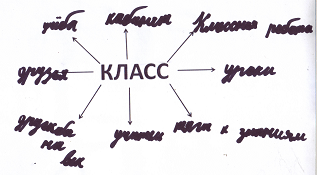 учёба
кабинет
Классная работа
друзья
КЛАСС
уроки
дружба
на
век
учителя
тяга к знаниям